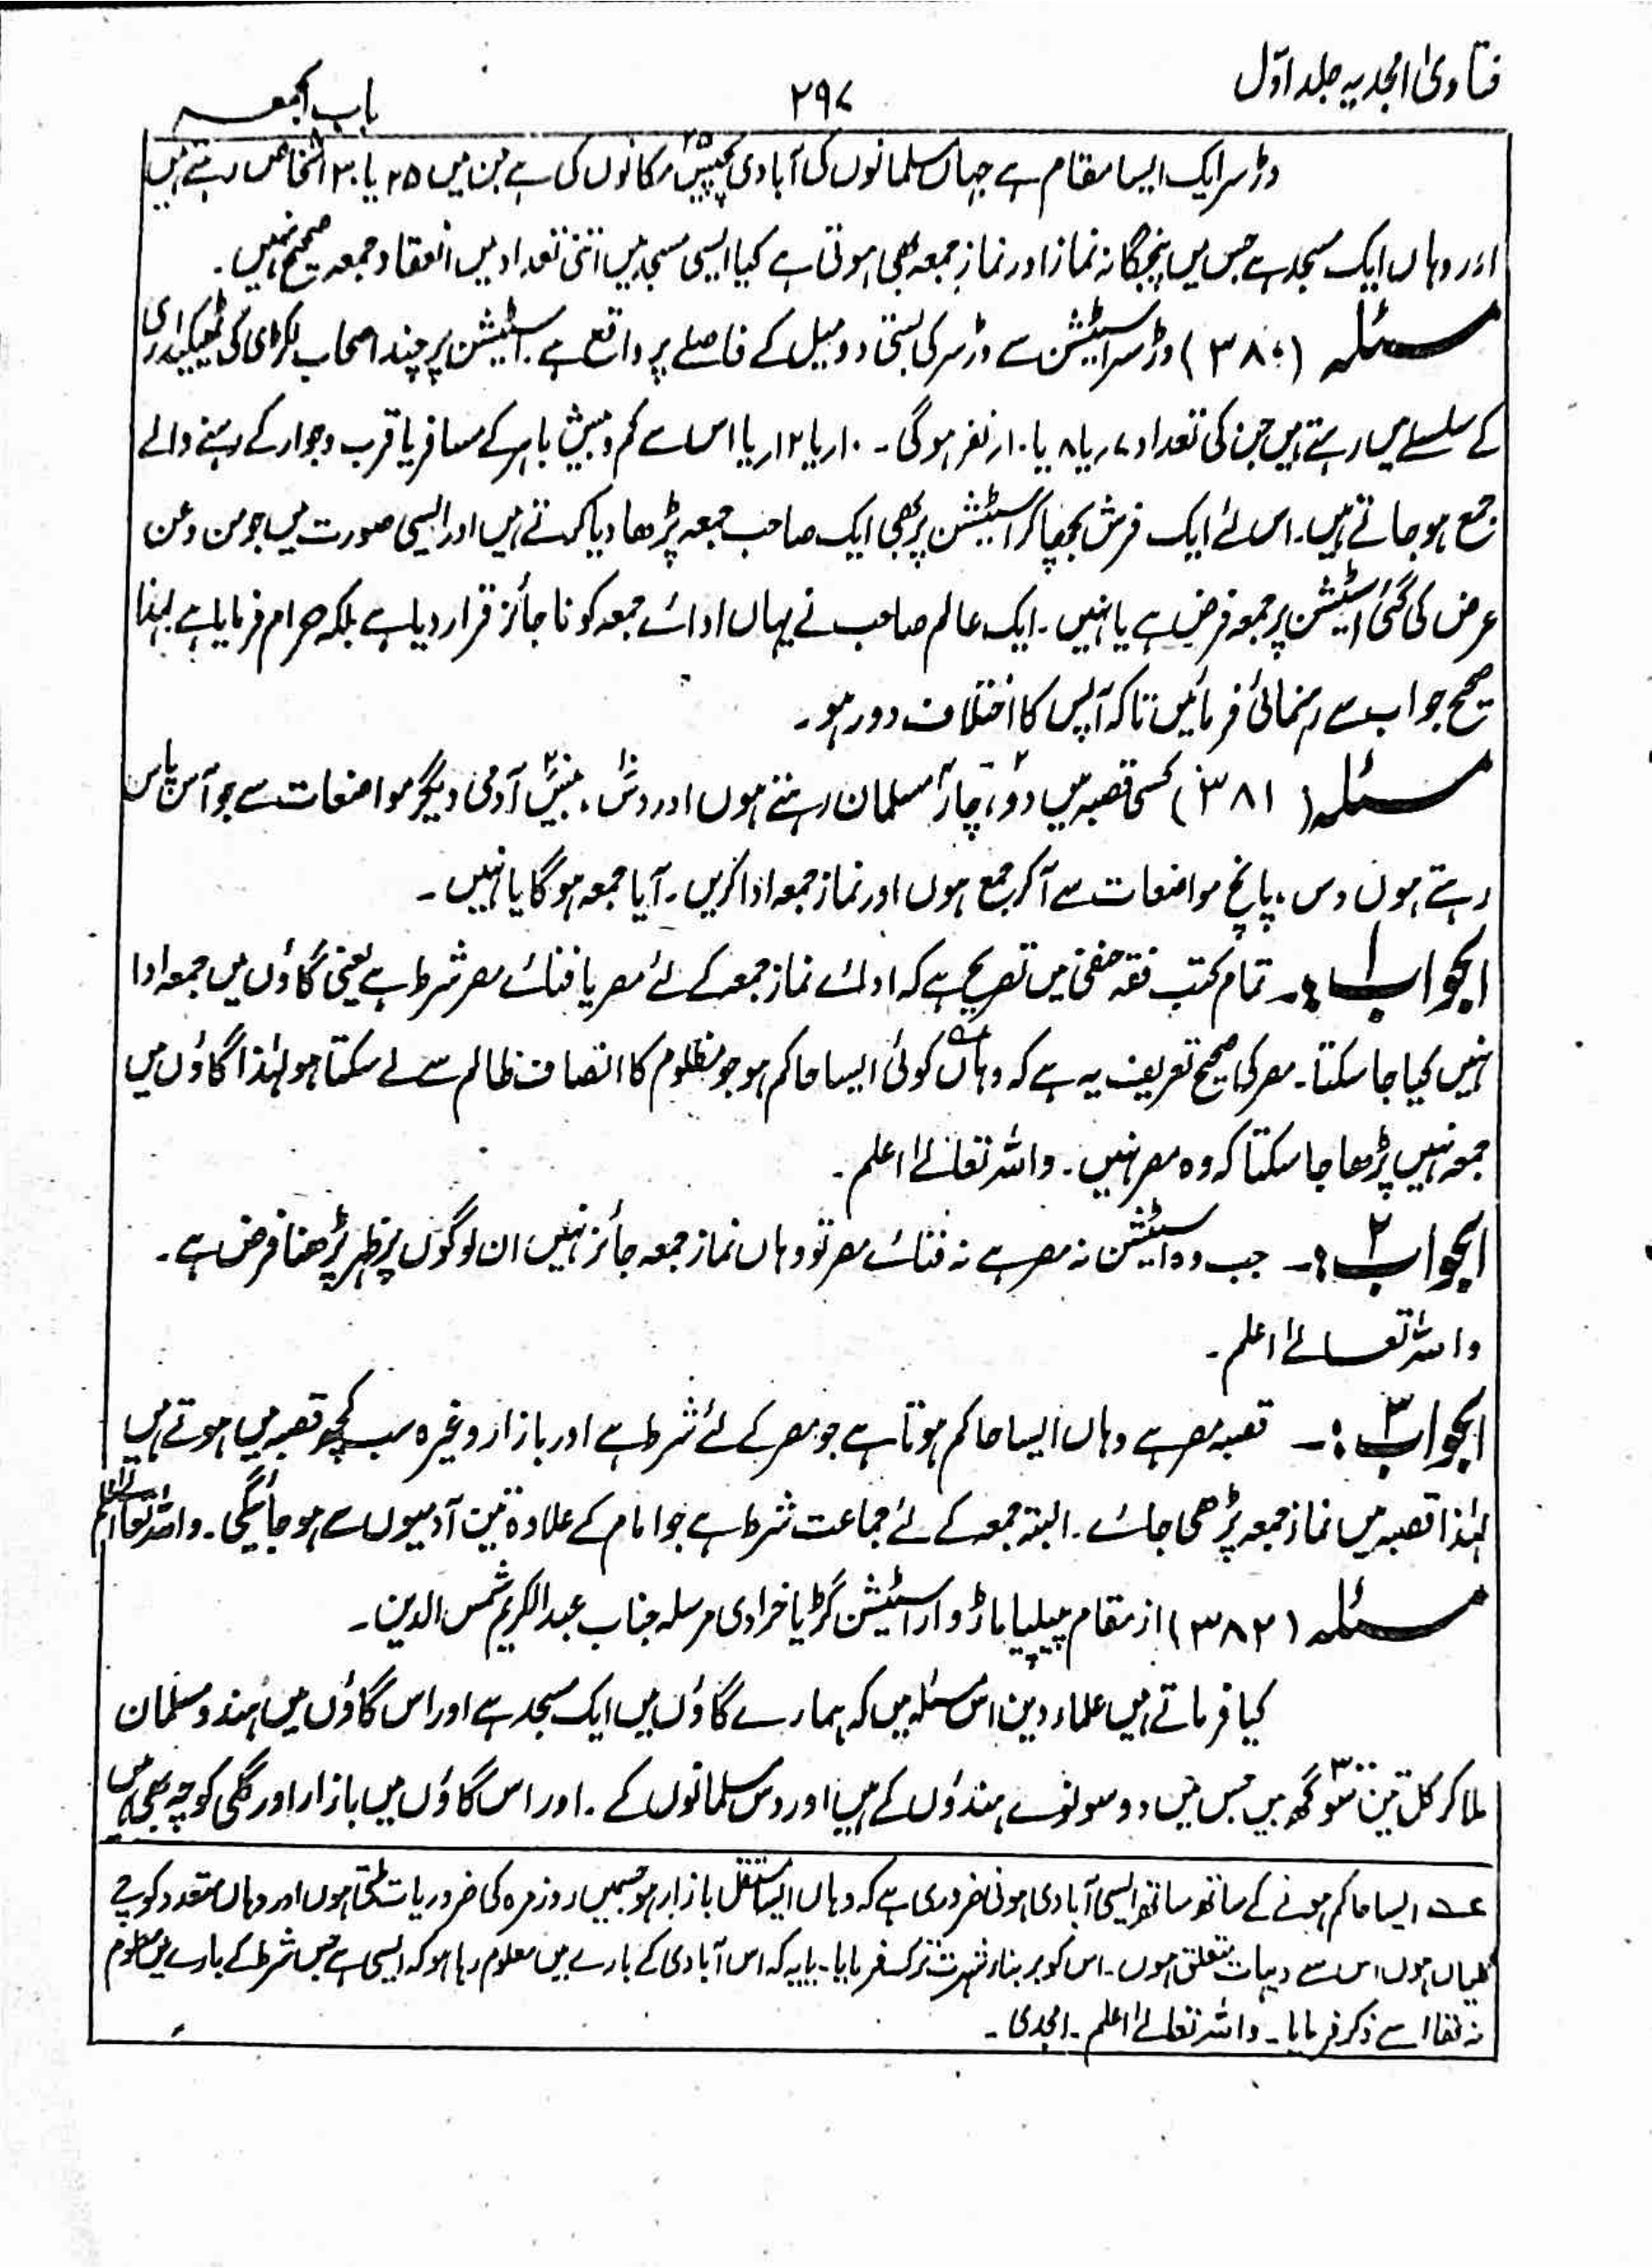 فتاویٰ امجدیہ جلد اوّل
۲۹۷
باب الجمعہ
وڑسر ایک ایسا مقام ہے جہاں مسلمانوں کی آبادی پچیس ۲۵ مکانوں کی ہے جن میں ۲۵ یا ۳۰ اشخاص رہتے ہیں
اور وہاں ایک مسجد ہے جس میں پنجگانہ نماز اور نماز جمعہ بھی ہوتی ہے کیا ایسی مسجد میں اتنی تعداد میں انعقاد جمعہ صحیح نہیں۔
مسئلہ (۳۸۰) وڑسر اسٹیشن سے وڑسر کی بستی دو میل کے فاصلے پر واقع ہے۔ اسٹیشن پر چند اصحاب لکڑی کی ٹھیکیداری
کے سلسلے میں رہتے ہیں جن کی تعداد ۷ر یا ۸ یا ۱۰ر نفر ہوگی۔ ۱۰ر یا ۱۲ر یا اس سے کم و بیش باہر کے مسافر یا قرب و جوار کے رہنے والے
جمع ہو جاتے ہیں۔ اس لئے ایک فرش بچھا کر اسٹیشن پر بھی ایک صاحب جمعہ پڑھا دیا کرتے ہیں اور ایسی صورت میں جو من و عن
عرض کی گئی اسٹیشن پر جمعہ فرض ہے یا نہیں۔ ایک عالم صاحب نے یہاں ادائے جمعہ کو ناجائز قرار دیا ہے بلکہ حرام فرمایا ہے لہٰذا
صحیح جواب سے رہنمائی فرمائیں تاکہ آپس کا اختلاف دور ہو۔
مسئلہ (۳۸۱) کسی قصبہ میں دو، چار مسلمان رہتے ہوں اور دس، بیس آدمی دیگر مواضعات سے جو آس پاس
رہتے ہوں دس، پانچ مواضعات سے آکر جمع ہوں اور نماز جمعہ ادا کریں۔ آیا جمعہ ہوگا یا نہیں۔
الجواب ۱:۔ تمام کتب فقہ حنفی میں تصریح ہے کہ ادائے نماز جمعہ کے لئے مصر یا فنائے مصر شرط ہے یعنی گاؤں میں جمعہ ادا
نہیں کیا جا سکتا۔ مصر کی صحیح تعریف یہ ہے کہ وہاں عہ کوئی ایسا حاکم ہو جو مظلوم کا انصاف ظالم سے لے سکتا ہو لہٰذا گاؤں میں
جمعہ نہیں پڑھا جا سکتا کہ وہ مصر نہیں۔ واللہ تعالےٰ اعلم۔
الجواب ۲:۔ جب وہ اسٹیشن نہ مصر ہے نہ فنائے مصر تو وہاں نماز جمعہ جائز نہیں ان لوگوں پر ظہر پڑھنا فرض ہے۔
واللہ تعالےٰ اعلم۔
الجواب ۳:۔ قصبہ مصر ہے وہاں ایسا حاکم ہوتا ہے جو مصر کے لئے شرط ہے اور بازار وغیرہ سب کچھ قصبہ میں ہوتے ہیں
لہٰذا قصبہ میں نماز جمعہ پڑھی جائے۔ البتہ جمعہ کے لئے جماعت شرط ہے جو امام کے علاوہ تین آدمیوں سے ہو جائیگی۔ واللہ تعالیٰ اعلم
مسئلہ (۳۸۲) از مقام پیپلیا باڑوار اسٹیشن گڑیا خرادی مرسلہ جناب عبدالکریم شمس الدین۔
کیا فرماتے ہیں علماء دین اس مسئلہ میں کہ ہمارے گاؤں میں ایک مسجد ہے اور اس گاؤں میں ہندو مسلمان
ملا کر کل تین سو ۳۰۰ گھر ہیں جس میں دو سو نوے ہندؤں کے ہیں اور دس مسلمانوں کے۔ اور اس گاؤں میں بازار اور گلی کوچہ بھی ہیں
عہ ایسا حاکم ہونے کے ساتھ ساتھ ایسی آبادی ہونی ضروری ہے کہ وہاں ایسا مستقل بازار ہو جسمیں روزمرہ کی ضروریات ملتی ہوں اور وہاں متعدد کوچے
گلیاں ہوں اس سے دیہات متعلق ہوں۔ اس کو بر بناء شہرت ترک فرمایا۔ یا یہ کہ اس آبادی کے بارے میں معلوم رہا ہو کہ ایسی ہے جس شرط کے بارے میں معلوم
نہ تھا اسے ذکر فرمایا۔ واللہ تعالےٰ اعلم۔ امجدی۔